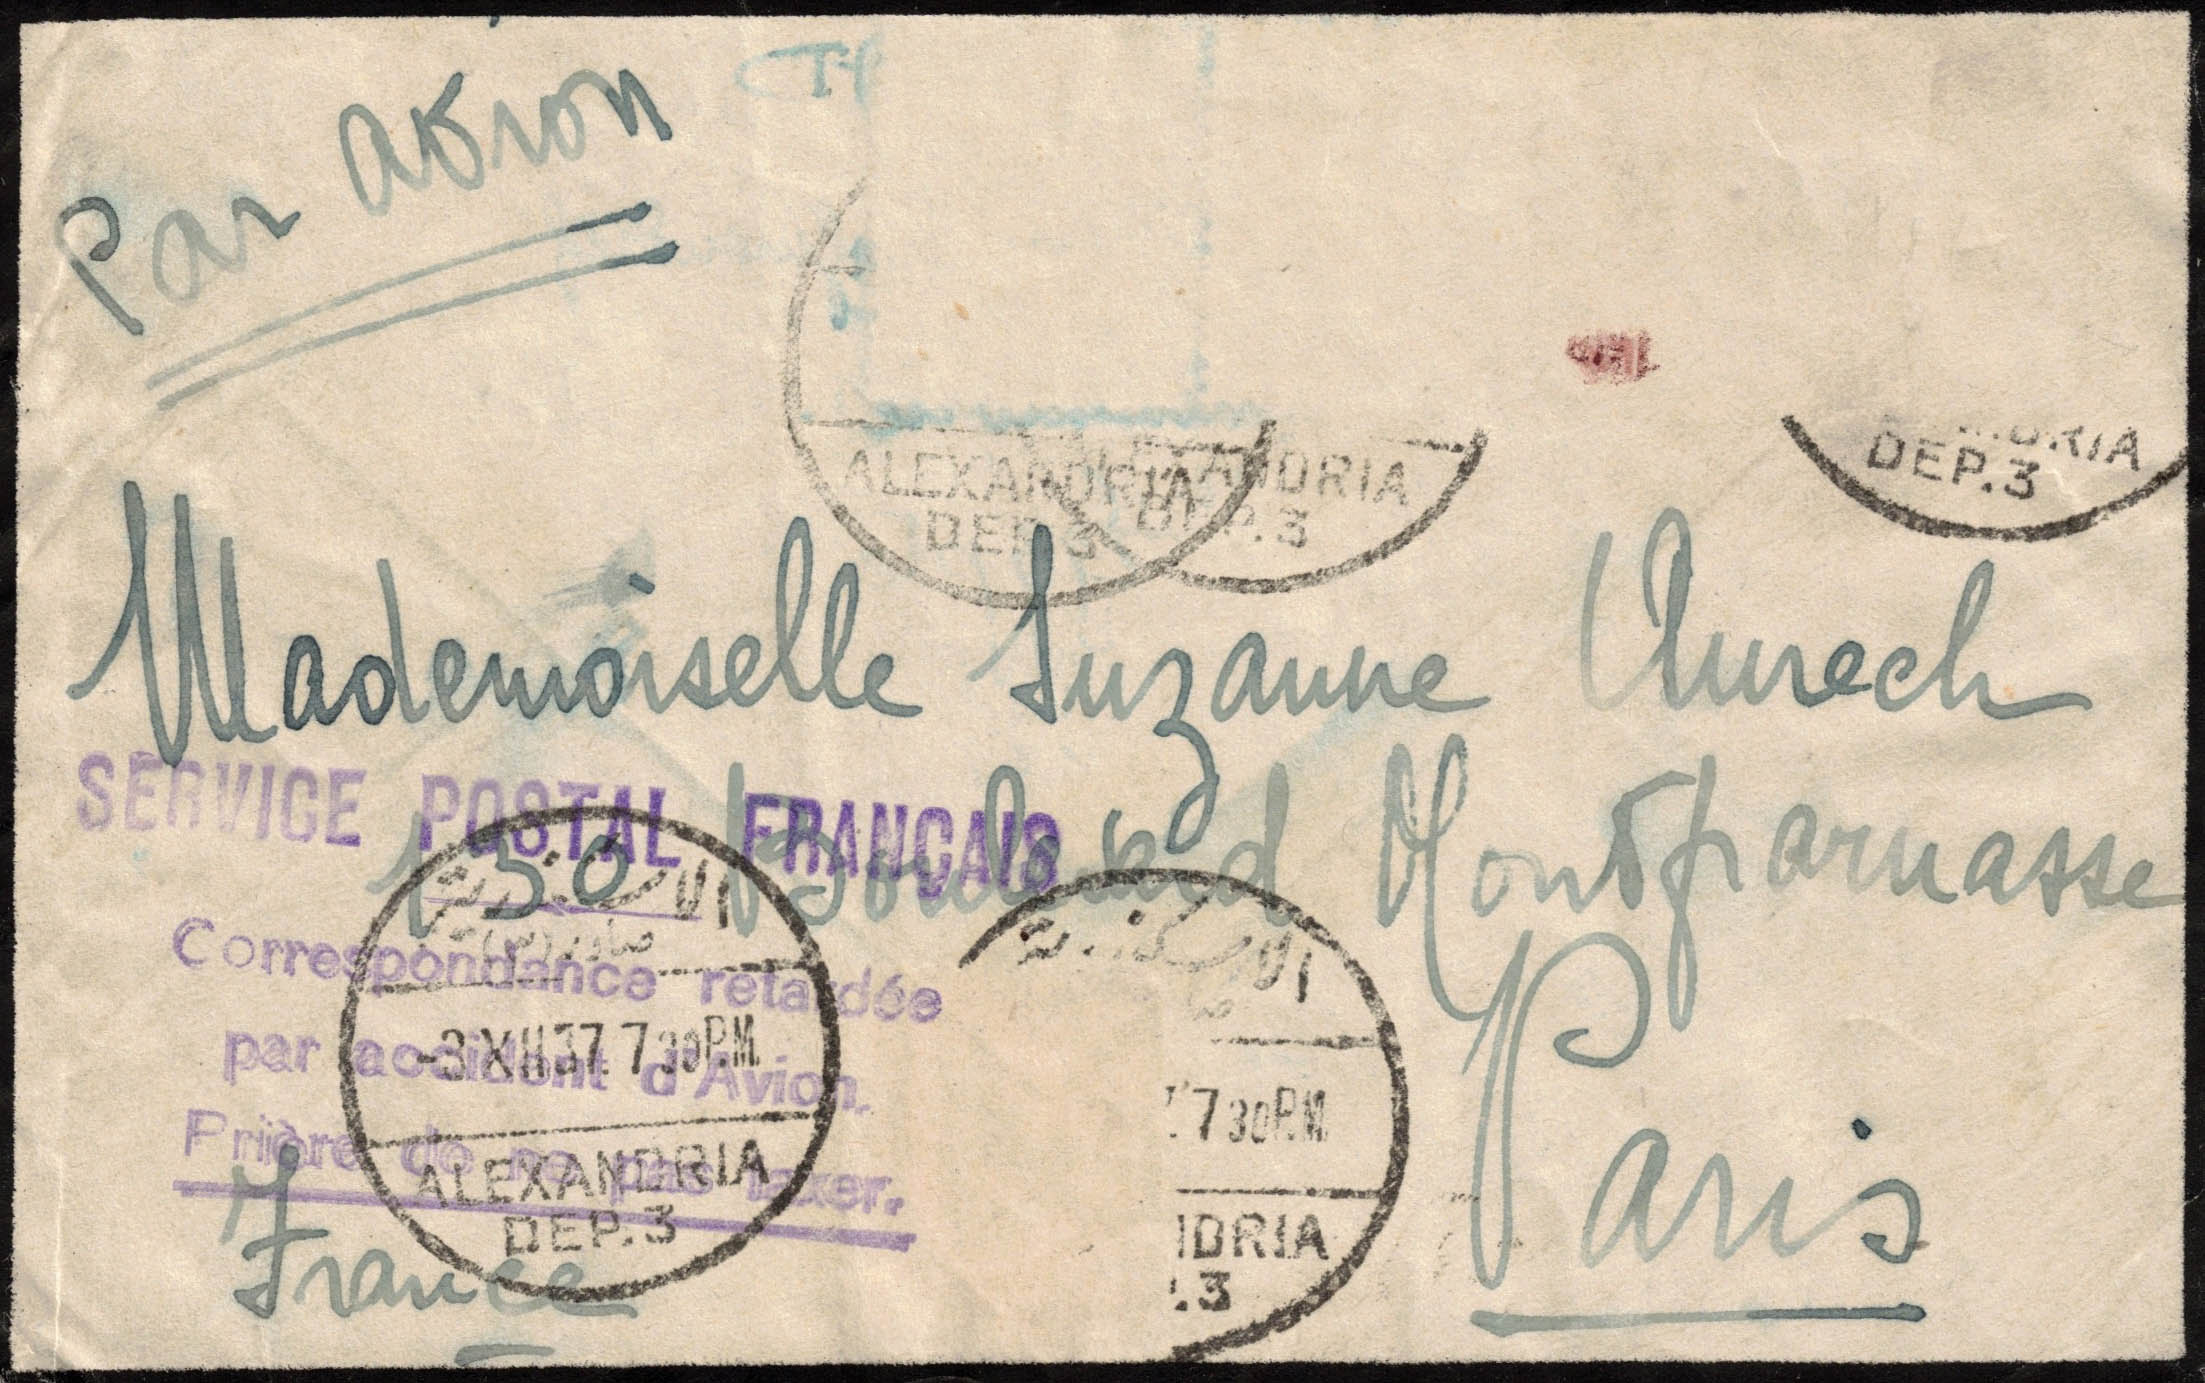 Par avion
ALEXANDRIA
DEP.3
ALEXANDRIA
DEP.3
DRIA
DEP.3
Mademoiselle Suzanne Aurech
SERVICE POSTAL FRANÇAIS
130 Boulevard Montparnasse
Correspondance retardée
par accident d'Avion.
Prière de ne pas taxer.
Paris
France
-3 XII 37. 7 30 P.M.
ALEXANDRIA
DEP.3
7 30 P.M.
NDRIA
.3